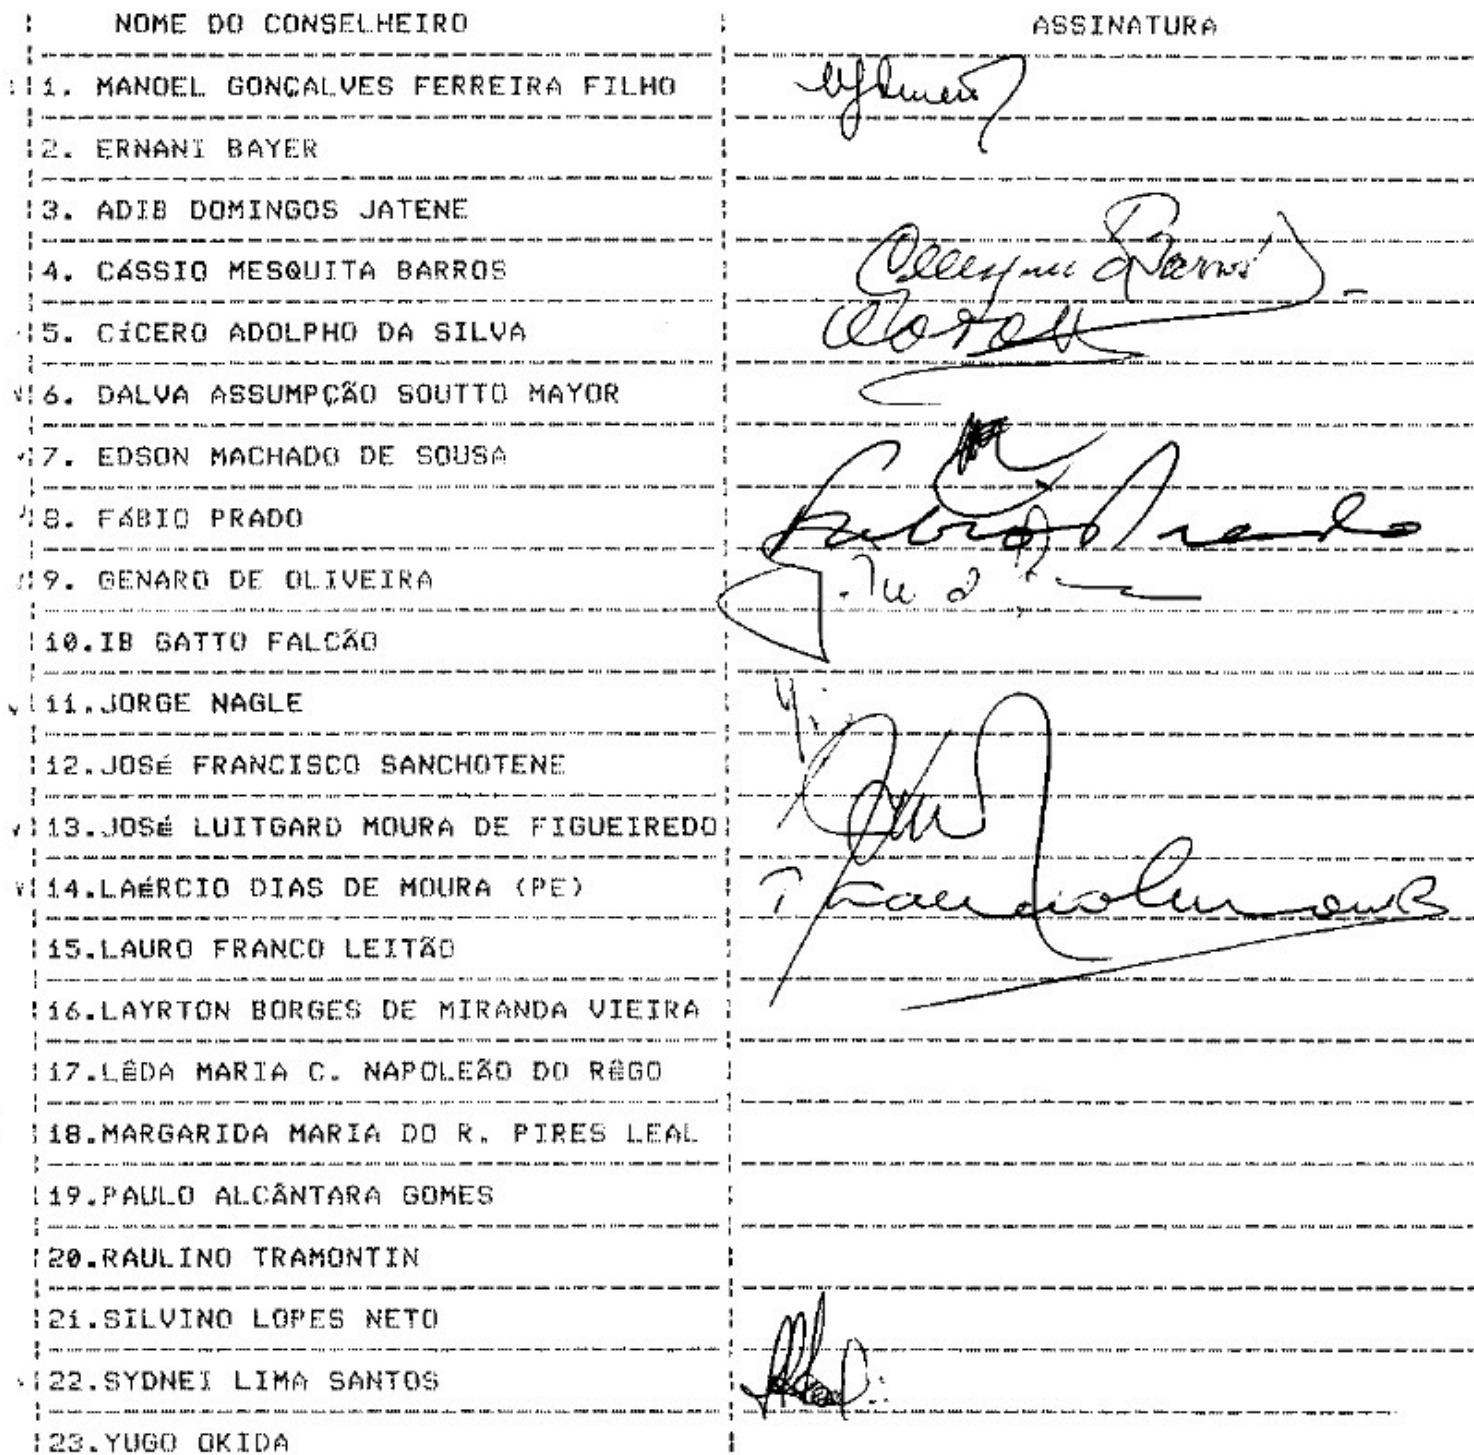 NOME DO CONSELHEIRO ASSINATURA
1. MANOEL GONÇALVES FERREIRA FILHO
2. ERNANI BAYER
3. ADIB DOMINGOS JATENE
4. CÁSSIO MESQUITA BARROS
5. CÍCERO ADOLPHO DA SILVA
6. DALVA ASSUMPÇÃO SOUTTO MAYOR
7. EDSON MACHADO DE SOUSA
8. FÁBIO PRADO
9. GENARO DE OLIVEIRA
10.IB GATTO FALCÃO
11.JORGE NAGLE
12.JOSÉ FRANCISCO SANCHOTENE
13.JOSÉ LUITGARD MOURA DE FIGUEIREDO
14.LAÉRCIO DIAS DE MOURA (PE)
15.LAURO FRANCO LEITÃO
16.LAYRTON BORGES DE MIRANDA VIEIRA
17.LÊDA MARIA C. NAPOLEÃO DO RÊGO
18.MARGARIDA MARIA DO R. PIRES LEAL
19.PAULO ALCÂNTARA GOMES
20.RAULINO TRAMONTIN
21.SILVINO LOPES NETO
22.SYDNEI LIMA SANTOS
23.YUGO OKIDA